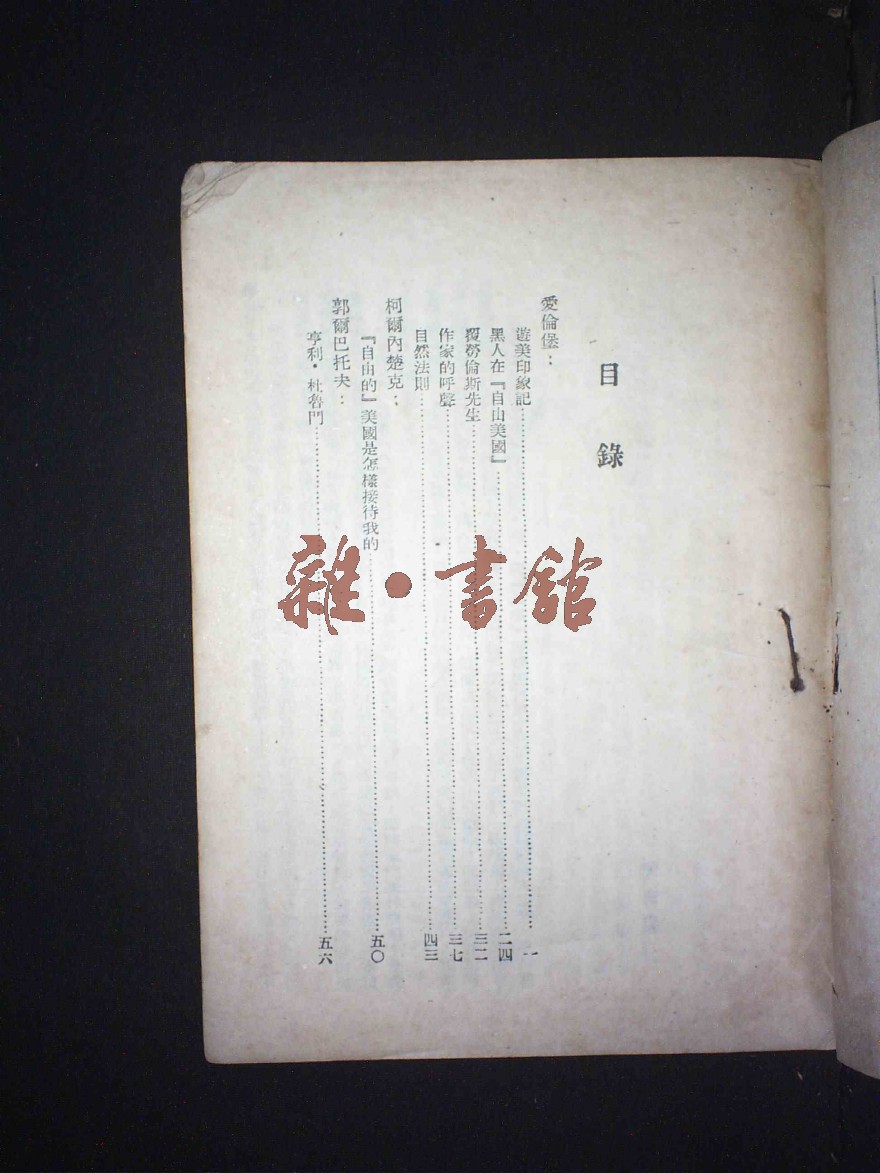 目錄
愛倫堡：
遊美印象記……一
黑人在『自由美國』……二四
覆勞倫斯先生……三二
作家的呼聲……三七
自然法則……四三
柯爾內楚克：
『自由的』美國是怎樣接待我的……五〇
郭爾巴托夫：
亨利·杜魯門……五六
雜·書館